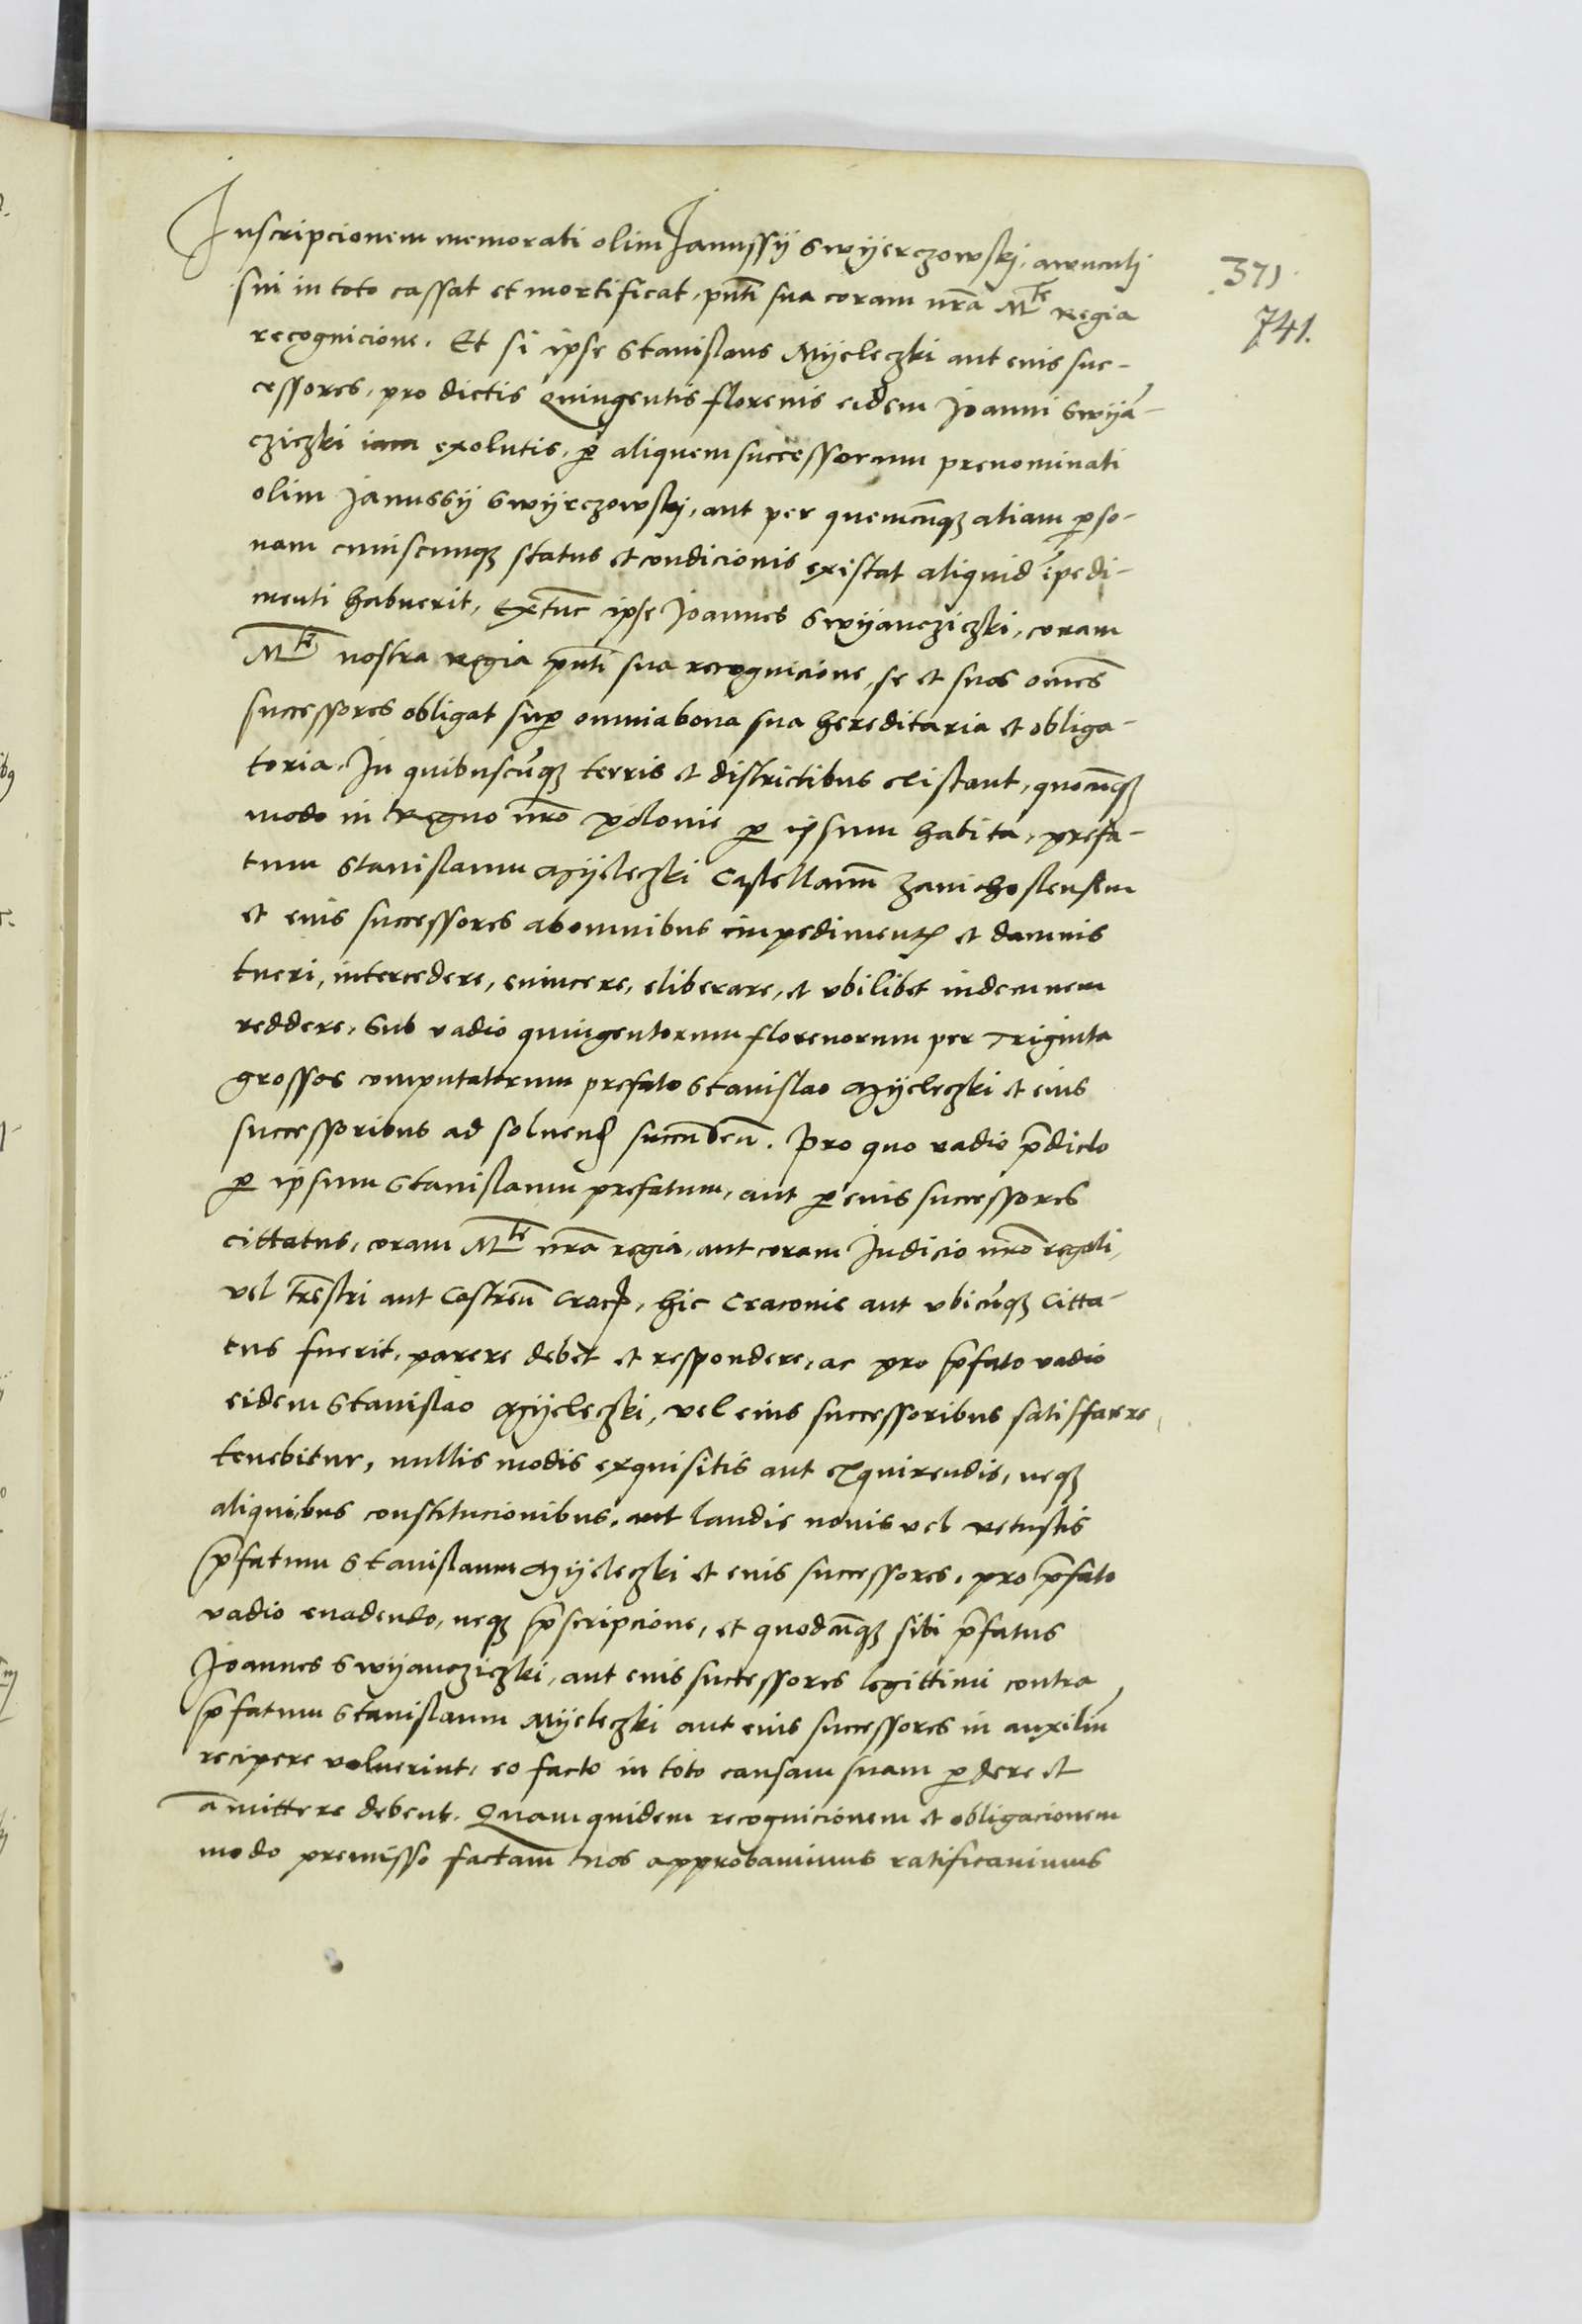 Inscripcionem memorati olim Janussij Swyerczowskj, awunculj
sui in toto cassat et mortificat, pñti sua coram nr̃a Mte regia
recognicione. Et si ipse Stanislaus Myeleczki aut eius suc-
cessores, pro dictis Quingentis florenis eidem Joanni Swyã-
cziczki iam exolutis, ꝑ aliquem successorum prenominati
olim Janussij Swyrczowskj, aut per quemcũqȝ aliam ꝑso-
nam cuiuscumqȝ status et condicionis existat aliquid ĩpedi-
menti habuerit, extũc ipse Joannes Swyancziczki, coram
Mte nostra regia pñti sua recognicione, se et suos om̃es
successores obligat suꝑ omnia bona sua hereditaria et obliga-
toria. In quibuscũqȝ terris et districtibus existant, quocũqȝ
modo in Regno nr̃o Polonie ꝑ ipsum habita, prefa-
tum Stanislaum Myeleczki Castellanũ Zawichostensem
et eius successores ab omnibus impedimentꝭ et damnis
tueri, intercedere, euincere, eliberare, et vbilibet indemnem
reddere, Sub vadio quingentorum florenorum per Triginta
grossos computatorum prefato Stanislao Myeleczki et eius
successoribus ad soluend succubeñ. Pro quo vadio p̃dicto
ꝑ ipsum Stanislaum prefatum, aut ꝑ eius successores
cittatus, coram Mte nr̃a regia, aut coram Judicio nr̃o regali,
vel tr̃estri aut Castreñ Cracꝭ, hic Cracouie aut vbicũqȝ Citta-
tus fuerit, parere debet et respondere, ac pro p̃fato vadio
eidem Stanislao Myeleczki, vel eius successoribus satisfacere
tenebitur, nullis modis exquisitis aut exquirendis, neqȝ
aliquibus constitucionibus, aut laudis nouis vel vetustis
p̃fatum Stanislaum Myeleczki et eius successores, pro p̃fato
vadio euadendo, neqȝ p̃scripcione, et quodcũqȝ sibi p̃fatus
Joannes Swyancziczki, aut eius successores legittimi contra
p̃fatum Stanislaum Myeleczki aut eius successores in auxiliũ
recipere voluerint, eo facto in toto causam suam ꝑdere et
amittere debent. Quam quidem recognicionem et obligacionem
modo premisso factam nos approbauimus ratificauimus
371
741.